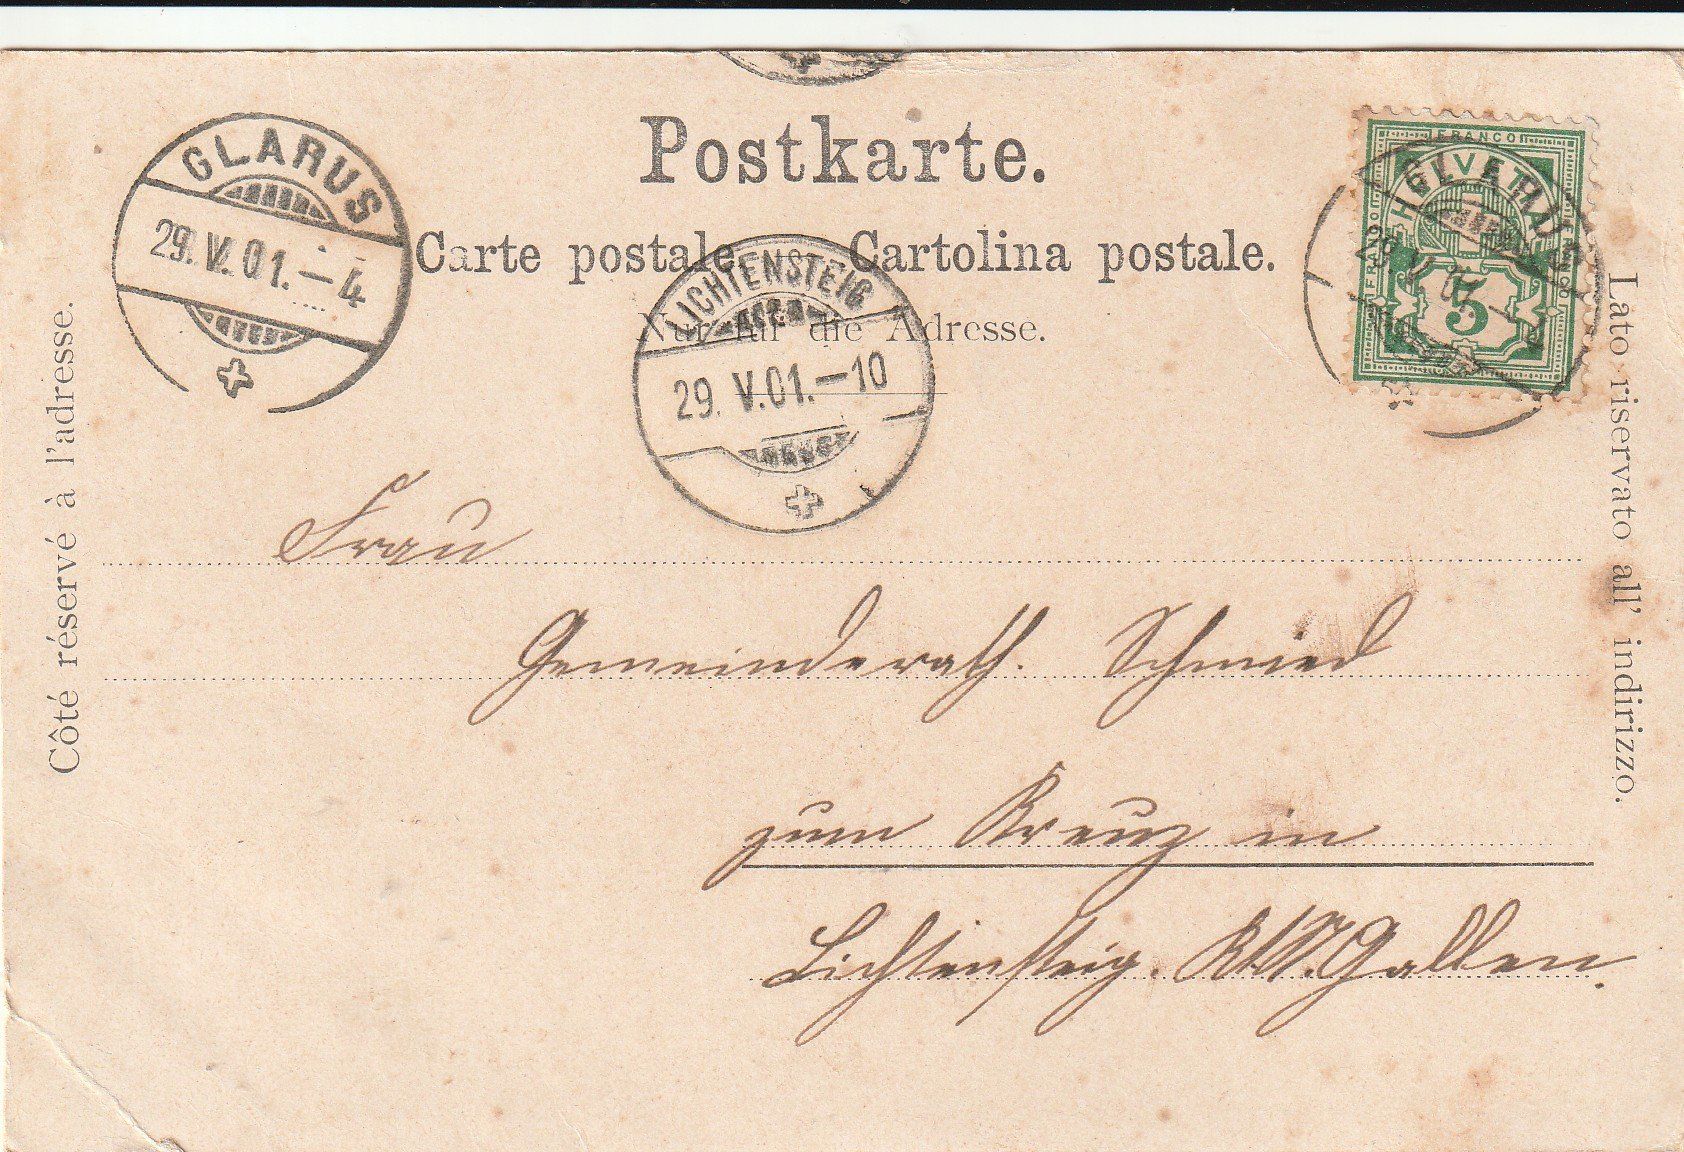 Postkarte.
Carte postale. Cartolina postale.
Nur für die Adresse.
Côté réservé à l'adresse.
Lato riservato all' indirizzo.
GLARUS
29. V. 01. – 4
LICHTENSTEIG
29. V. 01. – 10
FRANCO
HELVETIA
FRANCO
FRANCO
5
GLARUS
29. V. 01.
Frau
Gemeinderath. Schmied
zum Kreuz in
Lichtensteig. Kt. St. Gallen.